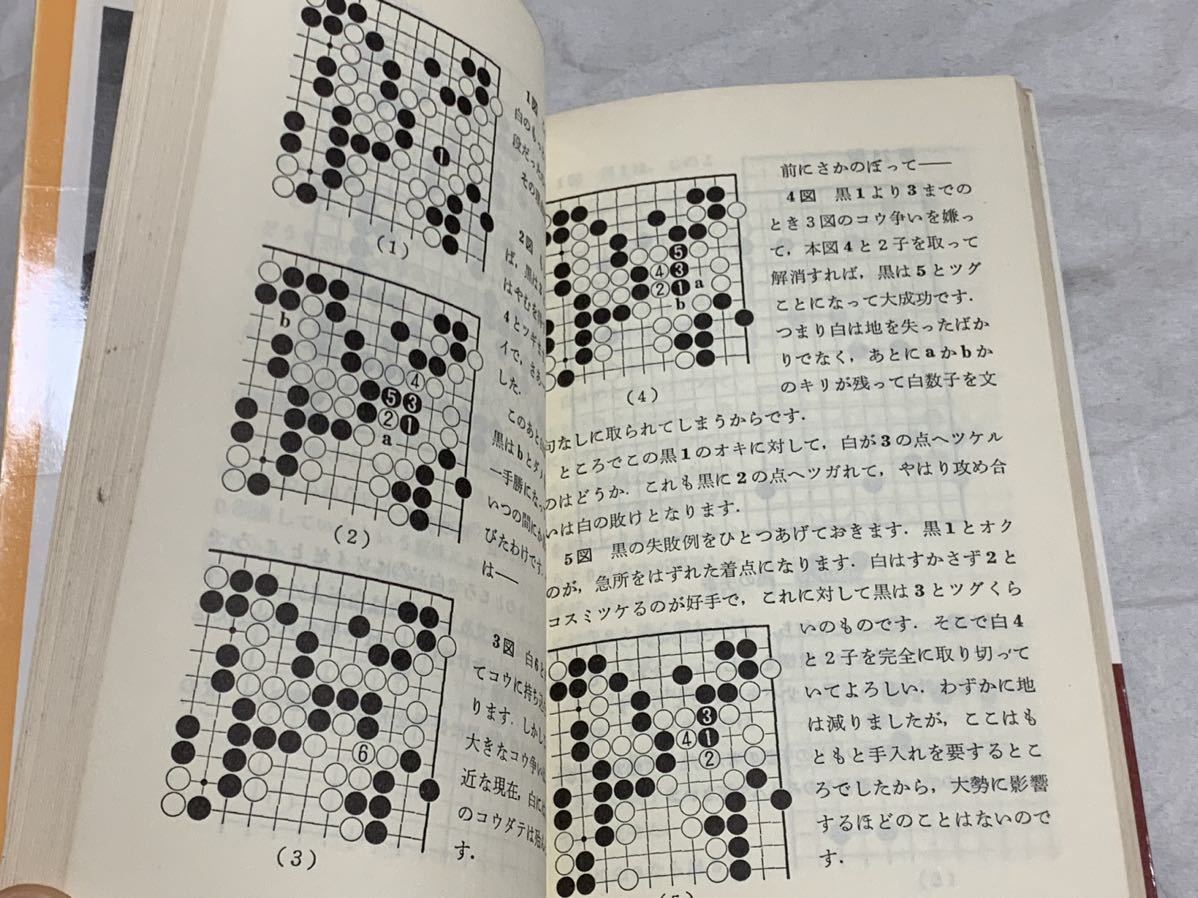 1図
白のも
段だった
その黒
(1)
2図
ば,黒は
はやむを得
4とツギ
イで,さら
した.
このあと
黒はbとダ
一手勝にな
いつの間に
びたわけです.
は——
b
4
5 3
2 1
a
(2)
3図 白6と
てコウに持ち込
ります.しかし
大きなコウ争い
近な現在,白に
のコウダテは殆
す.
6
(3)
前にさかのぼって——
4図 黒1より3までの
とき3図のコウ争いを嫌っ
て,本図4と2子を取って
解消すれば,黒は5とツグ
ことになって大成功です.
つまり白は地を失ったばか
りでなく,あとにaかbか
のキリが残って白数子を文
句なしに取られてしまうからです.
5
4 3
2 1 a
b
(4)
ところでこの黒1のオキに対して,白が3の点へツケル
のはどうか.これも黒に2の点へツガれて,やはり攻め合
いは白の敗けとなります.
5図 黒の失敗例をひとつあげておきます.黒1とオク
のが,急所をはずれた着点になります.白はすかさず2と
コスミツケるのが好手で,これに対して黒は3とツグくら
いのものです.そこで白4
と2子を完全に取り切って
いてよろしい.わずかに地
は減りましたが,ここはも
ともと手入れを要するとこ
ろでしたから,大勢に影響
するほどのことはないので
す.
3
4 1
2
(5)